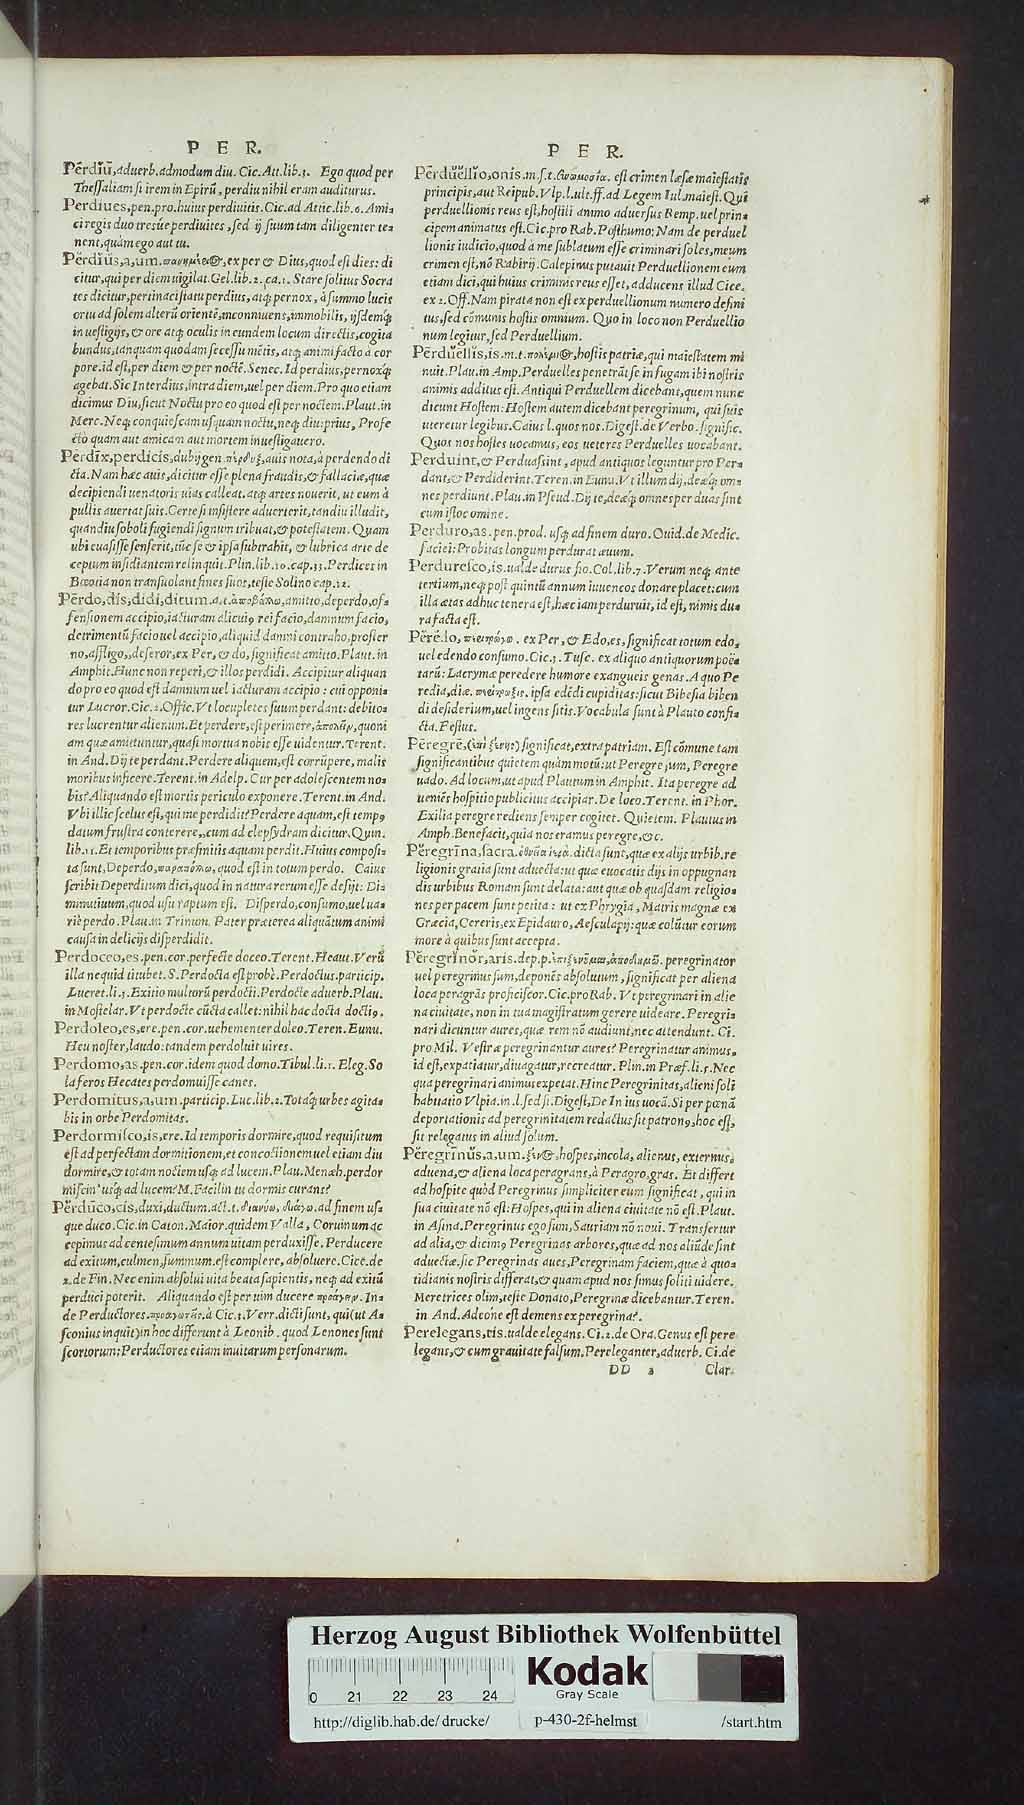 P E R.
Perdiū, aduerb. admodum diu. Cic. Att. lib. 3. Ego quod per
Thessaliam si irem in Epirū, perdiu nihil eram auditurus.
Perdiues, pen. pro. huius perdiuitis. Cic. ad Attic. lib. 6. Ami-
ci regis duo tresue perdiuites, sed ij suum tam diligenter te-
nent, quàm ego aut tu.
Perdius, a, um. ex per & Dius, quod est dies: di
citur, qui per diem uigilat. Gel. lib. 2. ca. 1. Stare solitus Socra
tes dicitur, pertinaci statu perdius, atq; pernox, à summo lucis
ortu ad solem alterū orientē, inconniuens, immobilis, ijsdemq́;
in uestigijs, & ore atq; oculis in eundem locum directis, cogita
bundus, tanquam quodam secessu mētis, atq; animi facto à cor
pore. id est, per diem & per noctē. Senec. Id perdius, pernoxq́;
agebat. Sic Interdius, intra diem, uel per diem. Pro quo etiam
dicimus Diu, sicut Noctu pro eo quod est per noctem. Plaut. in
Merc. Neq; conquiescam usquam noctu, neq; diu: prius, Profe
ctò quam aut amicam aut mortem inuestigauero.
Perdix, perdicis, dubij gen. πέρδιξ, auis nota, à perdendo di
cta. Nam hæc auis, dicitur esse plena fraudis, & fallaciæ, quæ
decipiendi uenatoris uias calleat, atq; artes nouerit, ut eum à
pullis auertat suis. Certe si insistere aduerterit, tandiu illudit,
quandiu soboli fugiendi signum tribuat, & potestatem. Quam
ubi euasisse senserit, tūc se & ipsa subtrahit, & lubrica arte de
ceptum insidiantem relinquit. Plin. lib. 10. cap. 33. Perdices in
Bœotia non transuolant fines suos, teste Solino cap. 12.
Perdo, dis, didi, ditum. a. t. ἀποβάλλω, amitto, deperdo, of-
fensionem accipio, iacturam alicuiꝰ rei facio, damnum facio,
detrimentū facio uel accipio, aliquid damni contraho, proster
no, affligo, desero, ex Per, & do, significat amitto. Plaut. in
Amphit. Hunc non reperi, & illos perdidi. Accipitur aliquan
do pro eo quod est damnum uel iacturam accipio: cui opponi-
tur Lucror. Cic. 2. Offic. Vt locupletes suum perdant: debito-
res lucrentur alienum. Et perdere, est perimere, quoni
am quæ amittuntur, quasi mortua nobis esse uidentur. Terent.
in And. Dij te perdant. Perdere aliquem, est corrūpere, malis
moribus inficere. Terent. in Adelp. Cur perdis adolescentem no-
bis? Aliquando est mortis periculo exponere. Terent. in And.
Vbi illic scelus est, qui me perdidit? Perdere aquam, est tempꝰ
datum frustra conterere, cum ad clepsydram dicitur. Quin.
lib. 11. Et temporibus præfinitis aquam perdit. Huius composi-
ta sunt, Deperdo, quod est in totum perdo. Caius
scribit Deperditum dici, quod in natura rerum esse desijt: Di-
minutiuum, quod usu raptum est. Disperdo, consumo, uel ua-
riè perdo. Plau. in Trinum. Pater præterea aliquātum animi
causa in delicijs disperdidit.
Perdoceo, es, pen. cor. perfecte doceo. Terent. Heaut. Verū
illa nequid titubet. S. Perdocta est probè. Perdoctus. particip.
Lucret. li. 5. Exitio multorū perdocti. Perdocte aduerb. Plau.
in Mostelar. Vt perdocte cūcta callet: nihil hac docta doctiꝰ.
Perdoleo, es, ere. pen. cor. uehementer doleo. Teren. Eunu.
Heu noster, laudo: tandem perdoluit uires.
Perdomo, as. pen. cor. idem quod domo. Tibul. li. 1. Eleg. So
la feros Hecates perdomuisse canes.
Perdomitus, a, um. particip. Luc. lib. 2. Totaq́; urbes agita-
bis in orbe Perdomitas.
Perdormisco, is, ere. Id temporis dormire, quod requisitum
est ad perfectam dormitionem, et concoctionem uel etiam diu
dormire, & totam noctem usq; ad lucem. Plau. Menæh. perdor
miscin' usq; ad lucem? M. Facilin tu dormis curans?
Perduco, cis, duxi, ductum. act. t. ad finem us-
que duco. Cic. in Caton. Maior. quidem Valla, Coruinum ac
cepimus ad centesimum annum uitam perduxisse. Perducere
ad exitum, culmen, summum. est complere, absoluere. Cice. de
2. de Fin. Nec enim absolui uita beata sapientis, neq; ad exitū
perduci poterit. Aliquando est per uim ducere In-
de Perductores. à Cic. 3. Verr. dicti sunt, qui (ut A-
sconius inquit) in hoc differunt à Leonib. quod Lenones sunt
scortorum: Perductores etiam inuitarum personarum.
P E R.
Perduellio, onis. m. f. t. est crimen læsæ maiestatis
principis, aut Reipub. Vlp. l. ult. ff. ad Legem Iul. maiest. Qui
perduellionis reus est, hostili animo aduersus Remp. uel prin-
cipem animatus est. Cic. pro Rab. Posthumo: Nam de perduel
lionis iudicio, quod à me sublatum esse criminari soles, meum
crimen est, nō Rabirij. Calepinus putauit Perduellionem eum
etiam dici, qui huius criminis reus esset, adducens illud Cice.
ex 2. Off. Nam pirata non est ex perduellionum numero defini
tus, sed cōmunis hostis omnium. Quo in loco non Perduellio
num legitur, sed Perduellium.
Perduellis, is. m. t. hostis patriæ, qui maiestatem mi
nuit. Plau. in Amp. Perduelles penetrāt se in fugam ibi nostris
animis additus est. Antiqui Perduellem dicebant, quem nunc
dicunt Hostem: Hostem autem dicebant peregrinum, qui suis
uteretur legibus. Caius l. quos nos. Digest. de Verbo. signific.
Quos nos hostes uocamus, eos ueteres Perduelles uocabant.
Perduint, & Perduassint, apud antiquos leguntur pro Per-
dant, & Perdiderint. Teren. in Eunu. Vt illum dij, deæq́; om-
nes perdiunt. Plau. in Pseud. Dij te, deæq́; omnes perduas sint
cum istoc omine.
Perduro, as. pen. prod. usq; ad finem duro. Ouid. de Medic.
faciei: Probitas longum perdurat æuum.
Perduresco, is. ualde durus fio. Col. lib. 7. Verum neq; ante
tertium, neq; post quintū annum iuuencos donare placet: cum
illa ætas adhuc tenera est, hæc iam perduruit, id est, nimis du-
ra facta est.
Peredo, ex Per, & Edo, es, significat totum edo,
uel edendo consumo. Cic. 3. Tusc. ex aliquo antiquorum poë-
tarū: Lacrymæ peredere humore exangueis genas. A quo Pe
redia, diæ. ipsa edēdi cupiditas: sicut Bibesia biben
di desiderium, uel ingens sitis. Vocabula sunt à Plauto confi-
cta. Festus.
Peregre, significat, extra patriam. Est cōmune tam
significantibus quietem quàm motū: ut Peregre sum, Peregre
uado. Ad locum, ut apud Plautum in Amphit. Ita peregre ad
ueniēs hospitio publicitus accipiar. De loco. Terent. in Phor.
Exilia peregre rediens semper cogitet. Quietem. Plautus in
Amph. Benefacit, quia nos eramus peregre, &c.
Peregrina, sacra. dicta sunt, quæ ex alijs urbib. re
ligionis gratia sunt aduecta: ut quæ euocatis dijs in oppugnan
dis urbibus Romam sunt delata: aut quæ ob quasdam religio-
nes per pacem sunt petita: ut ex Phrygia, Matris magnæ ex
Græcia, Cereris, ex Epidauro, Aesculapij: quæ colūtur eorum
more à quibus sunt accepta.
Peregrinor, aris. dep. p. peregrinator
uel peregrinus sum, deponēs absolutum, significat per aliena
loca peragrās proficiscor. Cic. pro Rab. Vt peregrinari in alie
na ciuitate, non in tua magistratum gerere uideare. Peregri-
nari dicuntur aures, quæ rem nō audiunt, nec attendunt. Ci.
pro Mil. Vestræ peregrinantur aures? Peregrinatur animus,
id est, expatiatur, diuagatur, recreatur. Plin. in Præf. li. 5. Nec
qua peregrinari animus expetat. Hinc Peregrinitas, alieni soli
habitatio Vlpia. in l. sed si. Digest, De In ius uocā. Si per pœnā
deportationis ad peregrinitatem redactus sit patronꝰ, hoc est,
sit relegatus in aliud solum.
Peregrinus, a, um. hospes, incola, alienus, externus,
aduena, & aliena loca peragrans, à Peragro, gras. Et differt
ad hospite quòd Peregrinus simpliciter eum significat, qui in
sua ciuitate nō est: Hospes, qui in aliena ciuitate nō est. Plaut.
in Asina. Peregrinus ego sum, Sauriam nō noui. Transfertur
ad alia, & dicimꝰ Peregrinas arbores, quæ ad nos aliūde sint
aduectæ. sic Peregrinas aues, Peregrinam faciem, quæ à quo-
tidianis nostris differat, & quam apud nos simus soliti uidere.
Meretrices olim, teste Donato, Peregrinæ dicebantur. Teren.
in And. Adeóne est demens ex peregrina?.
Perelegans, tis. ualde elegans. Ci. 2. de Ora. Genus est pere
legans, & cum grauitate falsum. Pereleganter, aduerb. Ci. de
DD 2 Clar.
Herzog August Bibliothek Wolfenbüttel
0 21 22 23 24
Kodak
Gray Scale
http://diglib.hab.de/drucke/ p-430-2f-helmst /start.htm